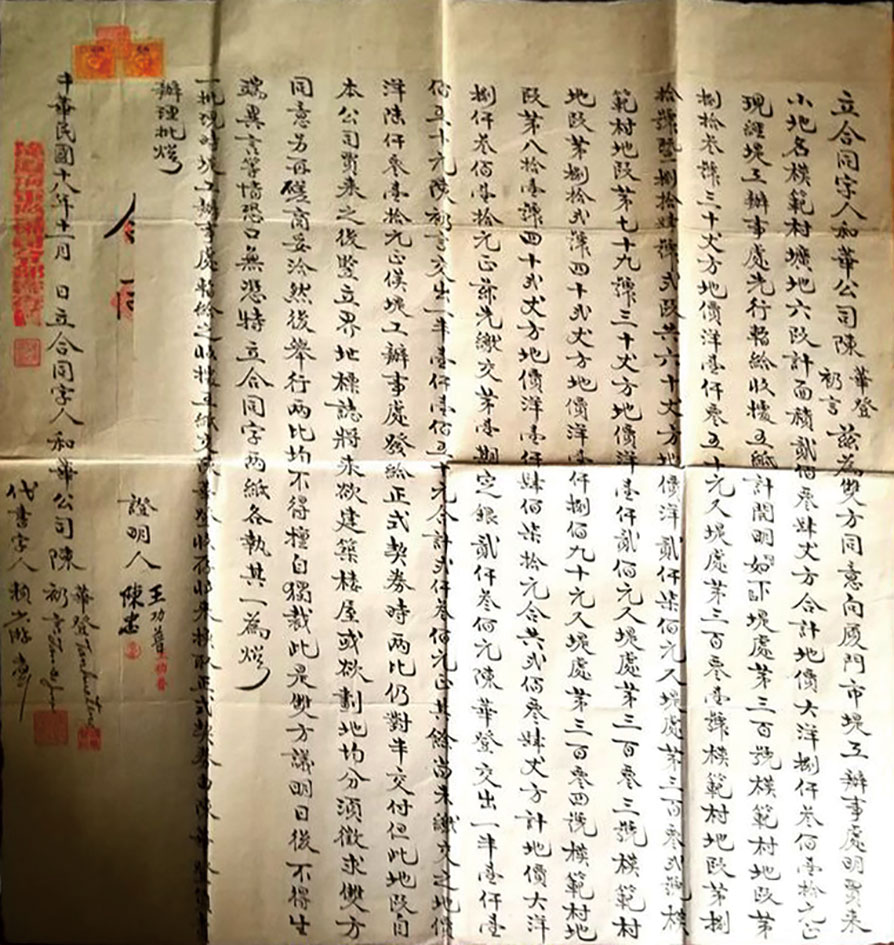 立合同字人和華公司陳華登初言茲為雙方同意向厦門市堤工辦事處明買來
小地名模範村壙地六段計面積貳佰叁肆丈方合計地價大洋捌仟叁佰壹拾元正
現經堤工辦事處先行暫給收據五紙計開明如下堤處第三百號模範村地段第
捌拾叁號三十丈方地價洋壹仟叁五十元又堤處第三百零壹號模範村地段第捌
拾號暨捌拾肆號弍段共六十丈方地價洋貳仟柒佰元又堤處第三百零弍號模
範村地段第七十九號三十丈方地價洋壹仟貳佰元又堤處第三百零三號模範村
地段第捌拾弍號四十弍丈方地價洋壹仟捌佰九十元又堤處第三百零四號模範村地
段第八拾壹號四十弍丈方地價洋壹仟肆佰柒拾元合共弍佰叁肆丈方計地價大洋
捌仟叁佰壹拾元正茲先繳交第壹期定銀貳仟叁佰元陳華登交出一半壹仟壹
佰五十元陳初言交出一半壹仟壹佰五十元合計弍仟叁佰元正其餘當未繳交之地價
洋陸仟零壹拾元正俟堤工辦事處發給正式契券時兩比仍對半交付但此地段自
本公司買來之後豎立界址標誌將來欲建築楼屋或欲劃地均分須徵求雙方
同意另再磋商妥洽然後舉行兩比均不得擅自獨裁此是雙方議明日後不得生
端異言等情恐口無憑特立合同字两紙各執其一為炤
一批現時堤工辦事處暫給之收據五紙交陳華登收存將來換取正式契券由陳
辦理批炤
證明人 王功普
陳忠
中華民國十八年十一月 日立合同字人和華公司陳華登初言
代書字人賴